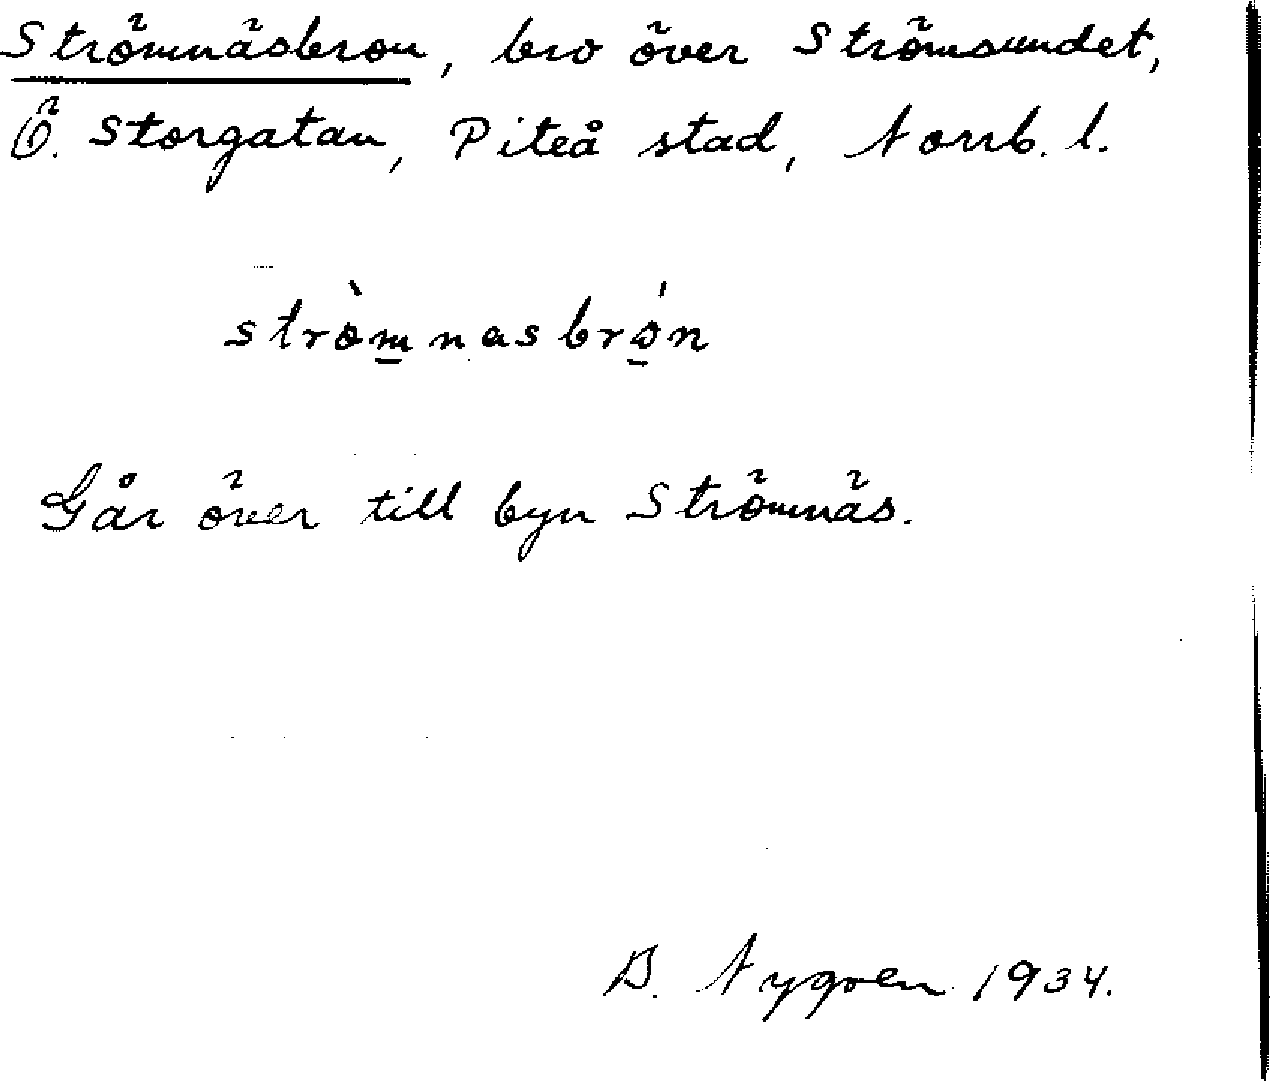 Strömnäsbron, bro över Strömsundet,
Ö. Storgatan, Piteå stad, Norrb. l.
stròm̲nasbró̲n
Går över till byn Strömnäs.
B. Nygren 1934.